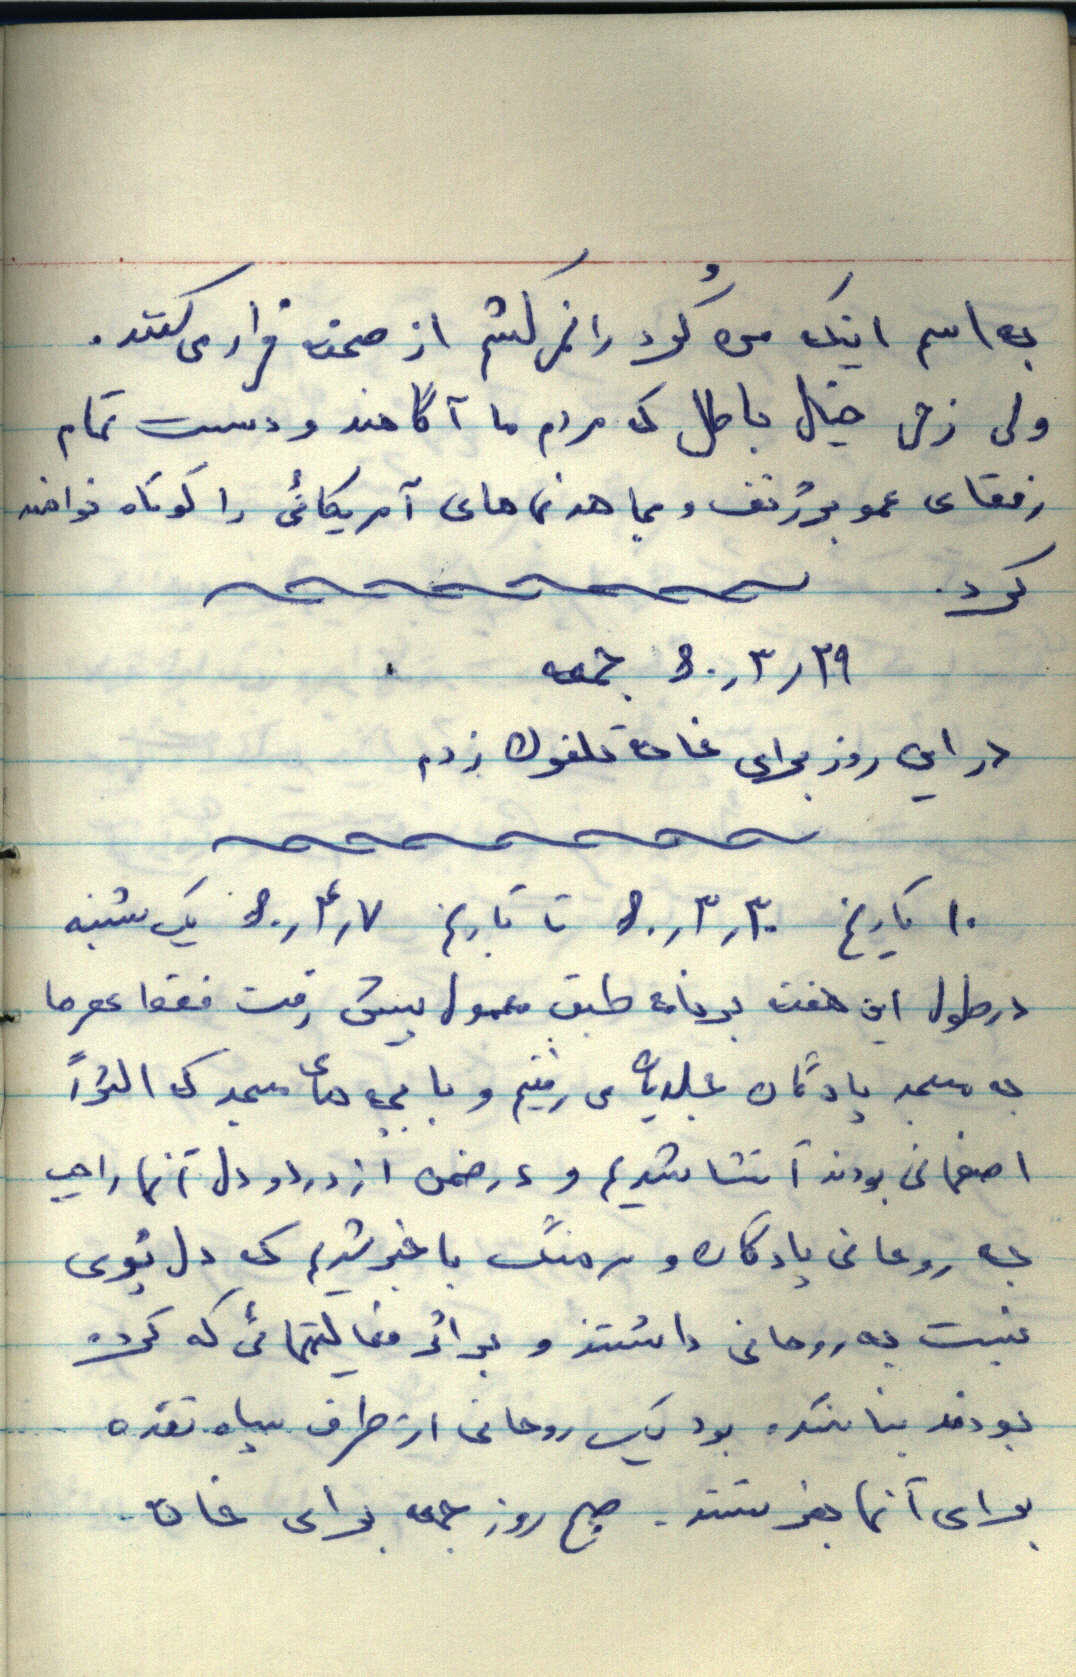 به اسم اینکه من کرد را نمی‌کشم از صحنه فرار می‌کنند.
ولی زهی خیال باطل که مردم ما آگاهند و دست تمام
رفقای عمو برژنف و مجاهدنماهای آمریکائی را کوتاه خواهند
کرد.
۲۹ر۳ر۶۰ جمعه
در این روز برای خانه تلفون زدم
۱۰ تاریخ ۳۰ر۳ر۶۰ تا تاریخ ۷ر۴ر۶۰ یک شنبه
در طول این هفته برنامه طبق معمول پیش رفت فقط عصرها
به مسجد پادگان جلدیان می رفتیم و با بچه های مسجد که اکثراً
اصفهانی بودند آشنا شدیم و در ضمن از درد و دل آنها راجب
به روحانی پادگان و سرهنگ باخبر شدیم که دل پُری
نسبت به روحانی داشتند و بر اثر فعالیتهائی که کرده
بودند بنا شده بود یک روحانی از طرف سپاه نقده
برای آنها بفرستند. صبح روز جمعه برای خانه